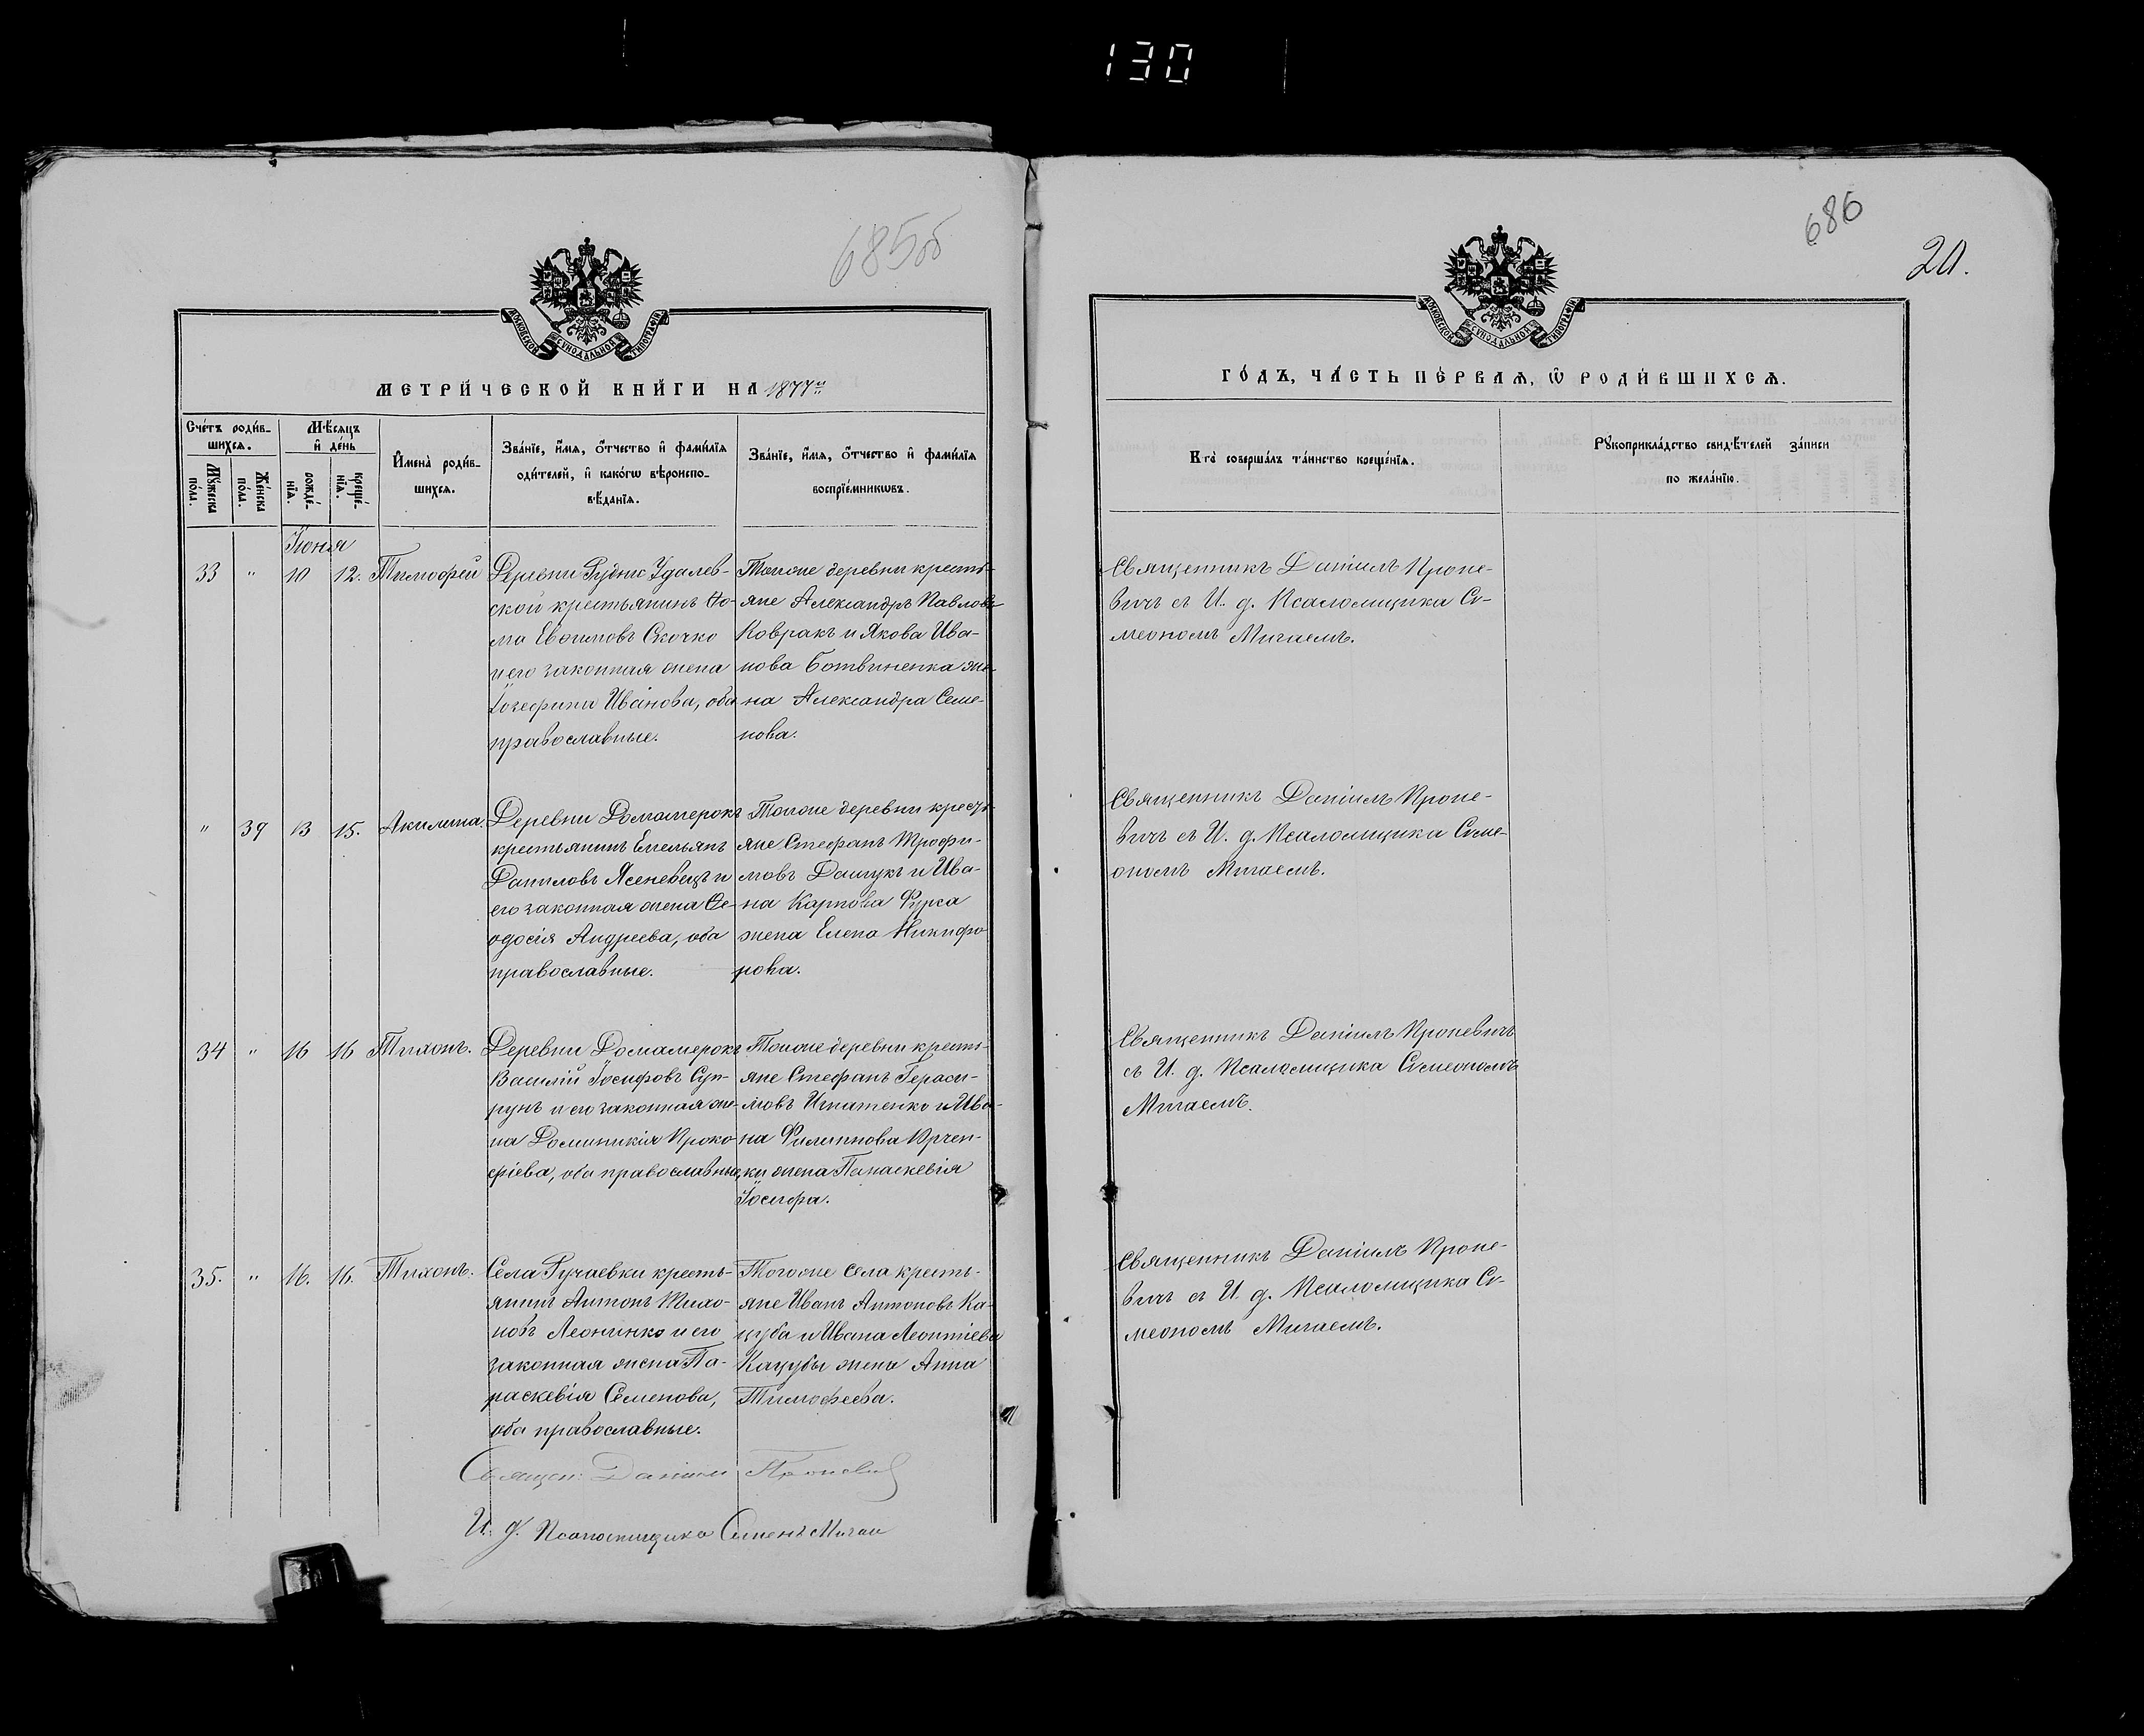 130
685об
МОСКОВСКОЙ СѴНОДАЛЬНОЙ ТИПОГРАФІИ
МЕТРИ́ЧЕСКОЙ КНИ́ГИ НА 1877й
Сче́тъ роди́в-
шихся.
Му́жеска
по́ла.
Же́нска
по́ла.
Мѣ́сяцъ
и҆ де́нь
рожде́-
нїѧ.
креще́-
нїѧ.
И҆мена̀ роди́в-
шихсѧ.
Зва́нїе, и҆́мѧ, ѻ҆́тчество и҆ фами́лїѧ
оди́телей, и҆ како́гѡ вѣроиспо-
вѣ́данїѧ.
Зва́нїе, и҆́мѧ, ѻ҆́тчество и҆ фами́лїѧ
воспрїе́мникѡвъ.
Іюня
33 " 10 12. Тимофей
Деревни Рудни Удалев-
ской крестьянинъ Ѳо-
ма Евѳимовъ Скочко
и его законная жена
Іозефина Иванова, оба
православные.
Тойже деревни кресть-
яне Александръ Павловъ
Ковракъ и Якова Ива-
нова Ботвиненка же-
на Александра Семе-
нова.
" 39 13 15. Акилина.
Деревни Домамерокъ
крестьянинъ Емельянъ
Даниловъ Ясеневецъ и
его законная жена Ѳе-
одосія Андреева, оба
православные.
Тойже деревни кресть-
яне Стефанъ Трофи-
мовъ Дашукъ и Ива-
на Карпова Фурса
жена Елена Никифо
рова.
34 " 16 16 Тихонъ.
Деревни Домамерокъ
Василій Іосифовъ Суп-
рунъ и его законная же-
на Доминикія Проко-
фіева, оба православные,
Тойже деревни кресть-
яне Стефанъ Гераси-
мовъ Игнатенко и Ива-
на Филиппова
жена Параскевія
Іосифа.
35. " 16. 16. Тихонъ.
Села Ручаевки кресть-
янинъ Антонъ Тихо-
новъ Леонинко и его
законная жена Па-
раскевія Семенова,
оба православные.
Тогоже села кресть-
яне Иванъ Антоновъ Ка-
цуба и Ивана Леонтіева
Кацубы жена Анна
Тимофеева.
Священ: Даніилъ Проневич
И. д. Псаломщика Сименъ Мигай
686
20.
МОСКОВСКОЙ СѴНОДАЛЬНОЙ ТИПОГРАФІИ
ГО́ДЪ, ЧА́СТЬ ПЕ́РВАѦ, Ѡ҆ РОДИ́ВШИХСѦ.
Кто̀ соверша́лъ та́инство креще́нїѧ.
Рꙋкоприкла́дство свидѣ́телей за́писи
по жела́нїю.
Священникъ Даніилъ Проне-
вичъ съ И. д. Псаломщика Си-
меономъ Мигаемъ.
Священникъ Даніилъ Проне-
вичъ съ И. д. Псаломщика Симе-
ономъ Мигаемъ.
Священникъ Даніилъ Проневичъ
съ И. д. Псаломщика Симеономъ
Мигаемъ.
Священникъ Даніилъ Проне-
вичъ съ И. д. Псаломщика Си-
меономъ Мигаемъ.